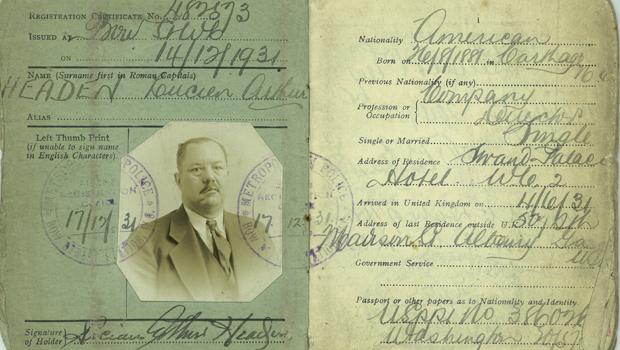 REGISTRATION CERTIFICATE No. 482573
ISSUED AT Bow
ON 14/12/1931
NAME (Surname first in Roman Capitals)
HEADEN Lucien Arthur
ALIAS
Left Thumb Print
(if unable to sign name
in English Characters).
METROPOLITAN POLICE
17/12 31
METROPOLITAN POLICE
17 12 31
Signature
of Holder
Lucien Arthur Headen
1
Nationality American
Born on in Carthage
Previous Nationality (if any)
Profession or
Occupation
Company
Single or Married Single
Address of Residence Strand Palace
Hotel. W.C. 2
Arrived in United Kingdom on 31
Address of last Residence outside U.K.
Madison St Albany
Government Service
Passport or other papers as to Nationality and Identity.
USPP No
Washington